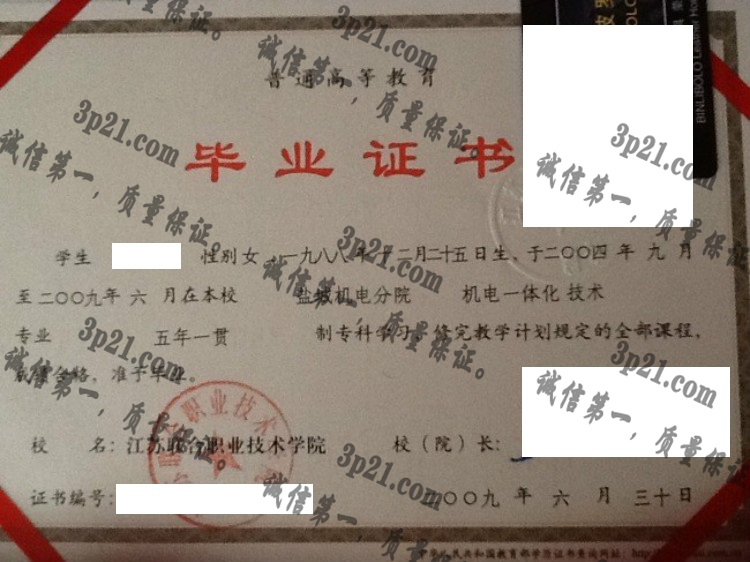 普通高等教育
毕业证书
学生 性别女,一九八八年十二月二十五日生,于二〇〇四年九月
至二〇〇九年六月在本校 盐城机电分院 机电一体化技术
专业 五年一贯 制专科学习,修完教学计划规定的全部课程,
成绩合格,准予毕业
校 名:江苏联合职业技术学院 校(院)长:
证书编号: 二〇〇九年六月三十日
中华人民共和国教育部学历证书查询网址:http://
BINLIBOLO
3p21.com
诚信第一,质量保证。
3p21.com
诚信第一,质量保证。
3p21.com
诚信第一,质量保证。
3p21.com
诚信第一,质量保证。
3p21.com
诚信第一,质量保证。
3p21.com
诚信第一,质量保证。
3p21.com
诚信第一,质量保证。